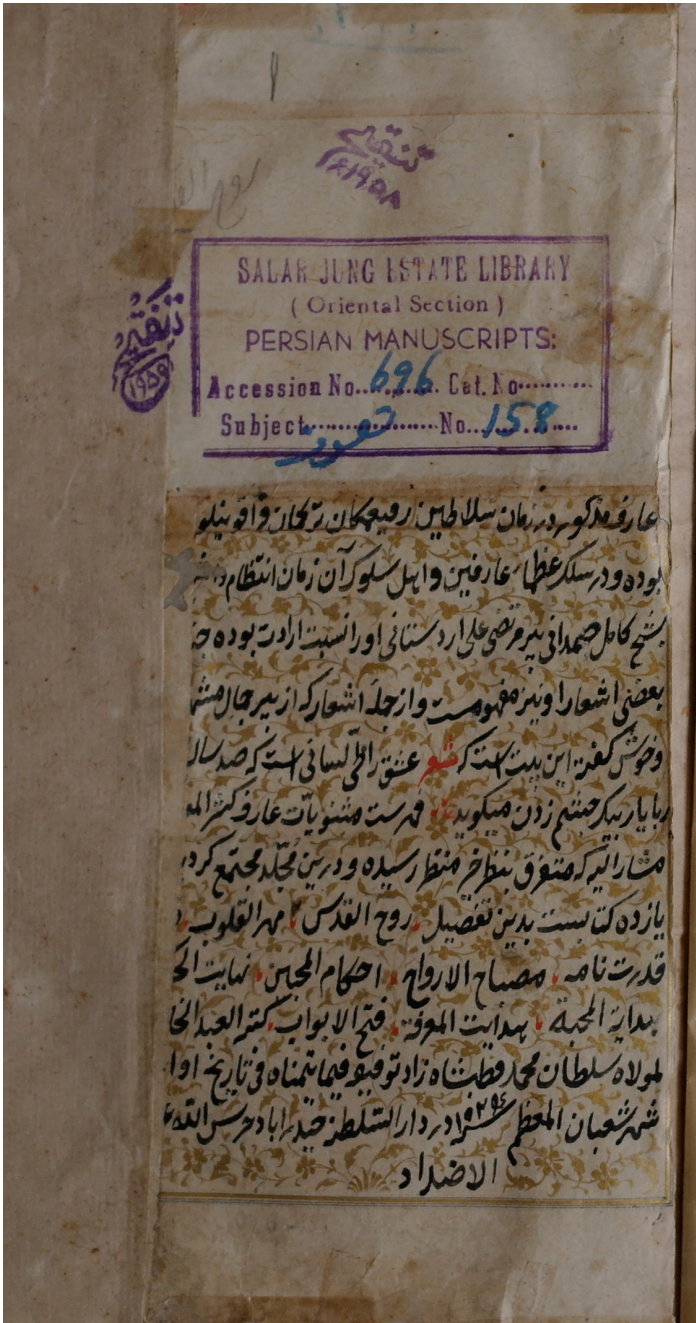 تنقیح
۱۹۵۸
SALAR JUNG ESTATE LIBRARY
( Oriental Section )
PERSIAN MANUSCRIPTS:
Accession No. 696 Cat. No
Subject تصوف No. 158
تنقیح
۱۹۵۹
عارف مذکور در زمان سلاطین رفیعمکان ترکمان و اقوینلو
بوده و در سلک عظماء عارفین و اهل سلوک آن زمان انتظام
بشیخ کامل صمدانی پیر مرتضی علی اردستانی او را نسبت ارادت بوده
بعضی اشعار او نیز مفهومست و از جمله اشعار که از پیر جمال
و خوش گفته این بیت است که شعر عشق را طی لسانی است که صد ساله
با یار بیک چشم زدن میگوید فهرست مثنویات عارف
مشار الیه که متفرق بنظر رسیده و درین مجلد مجتمع کرد
یازده کتابست بدین تفصیل روح القدس مهر القلوب
قدرت نامه مصباح الارواح احکام المحبین نهایت
بدایة المحبة هدایت المعرفة فتح الابواب کتبه العبد
لمولاه سلطان محمد قطبشاه زاد توفیقه فیما یتمناه فی تاریخ
شهر شعبان المعظم در دار السلطنه حیدراباد حرس الله
الاضداد